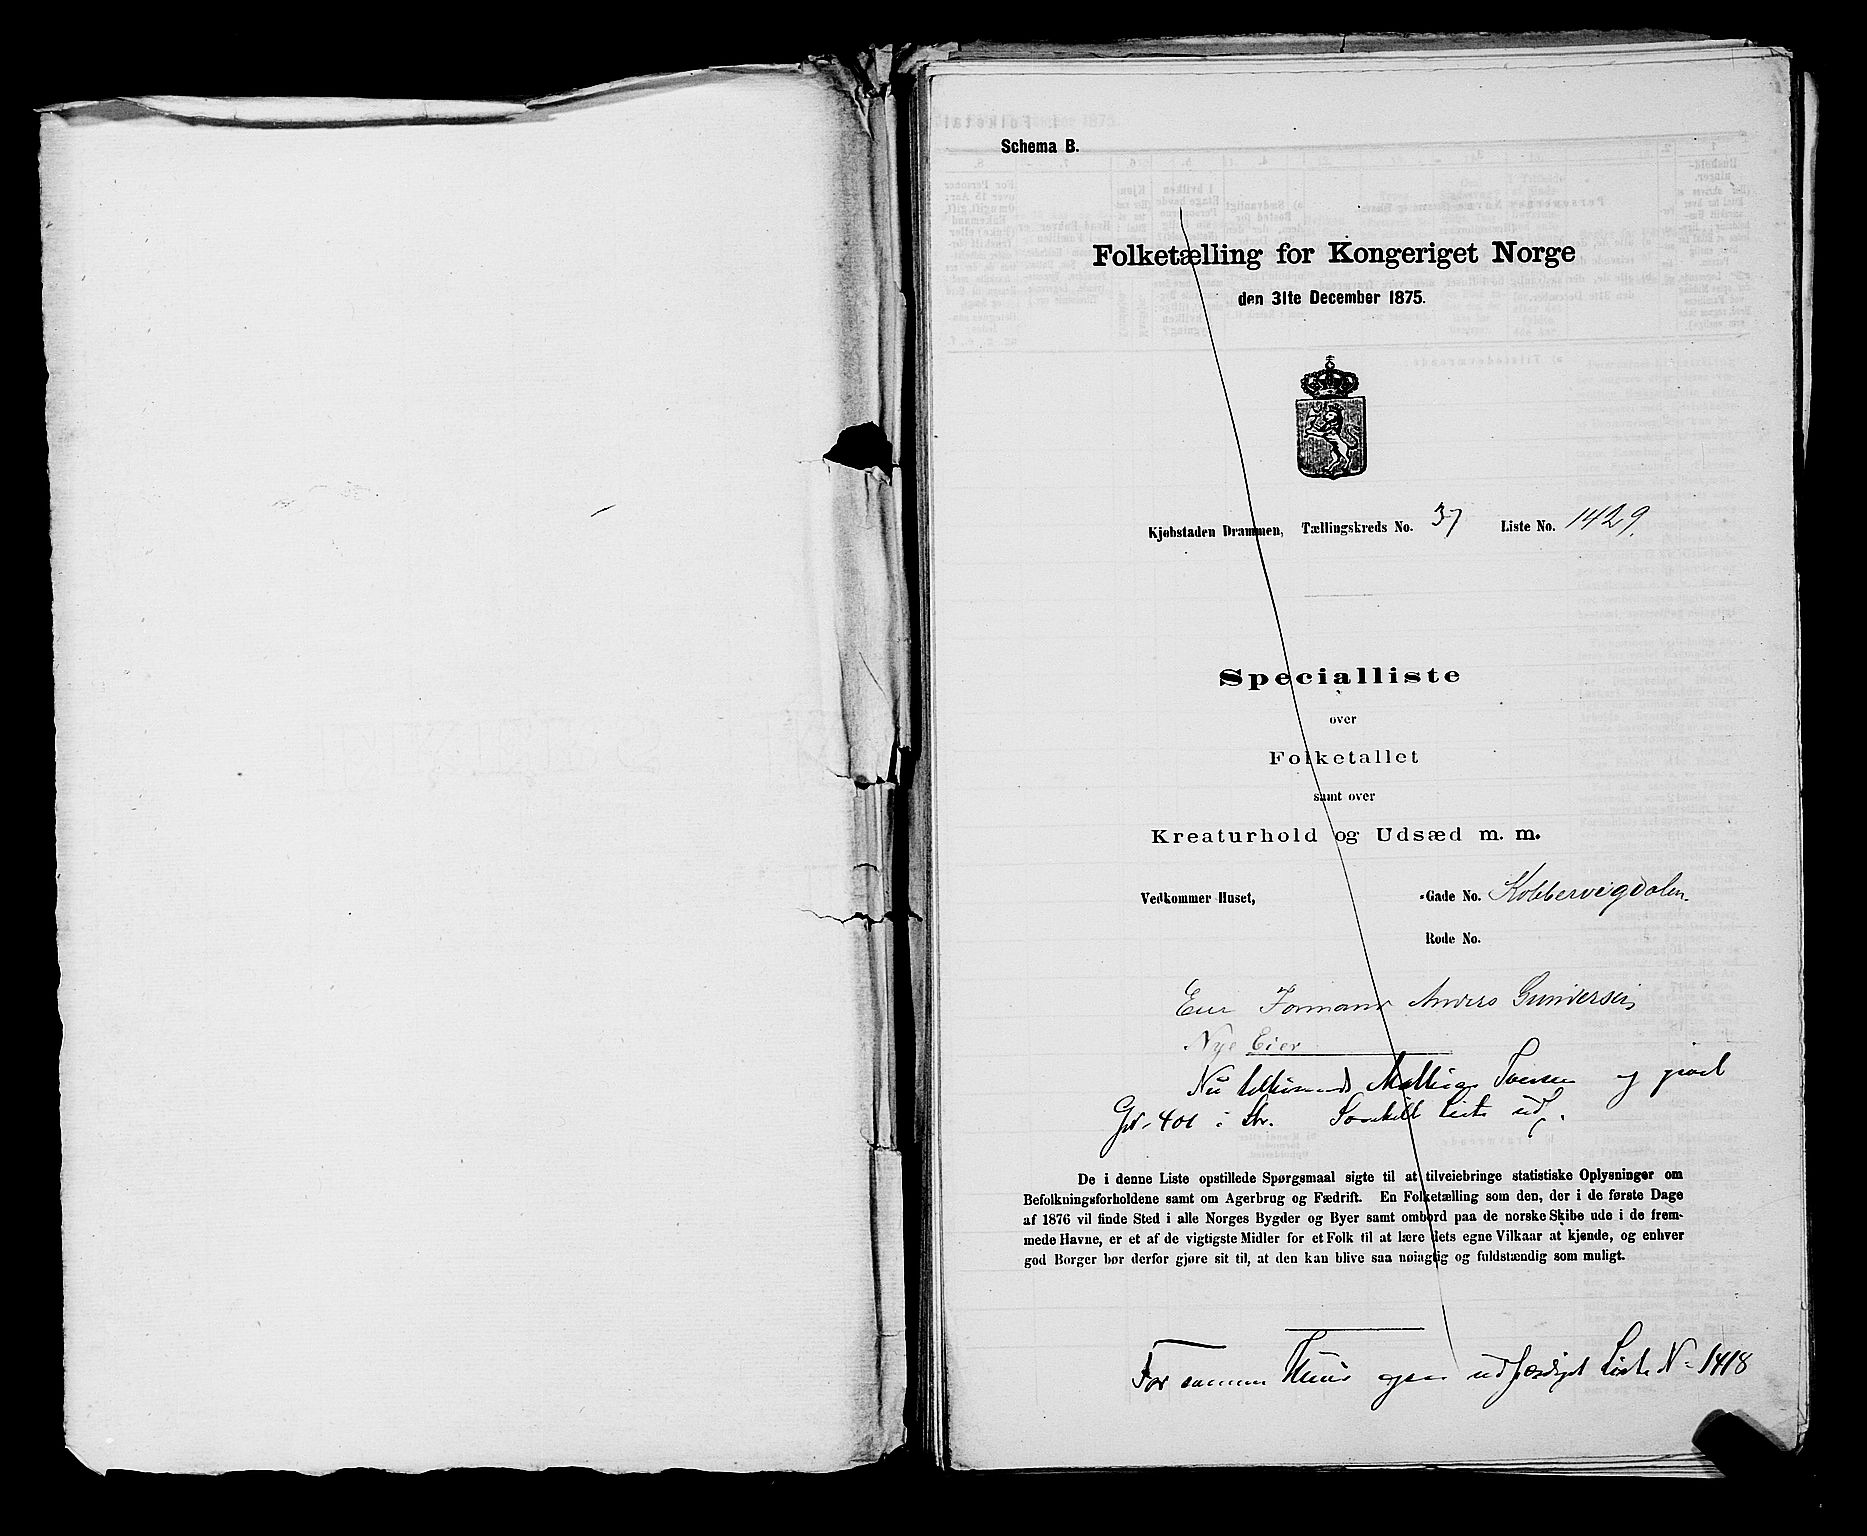 Schema B.
Folketælling for Kongeriget Norge
den 31te December 1875.
Kjøbstaden Drammen, Tællingskreds No. 37 Liste No. 1429.
Specialliste
over
Folketallet
samt over
Kreaturhold og Udsæd m. m.
Vedkommer Huset, -Gade No. Kobbervigdalen.
Rode No.
Eier Formand Anders Gundersen
Nye Eier
Nu Mathias Iversen og
401 i Str. Liste
De i denne Liste opstillede Spørgsmaal sigte til at tilveiebringe statistiske Oplysninger om
Befolkningsforholdene samt om Agerbrug og Fædrift. En Folketælling som den, der i de første Dage
af 1876 vil finde Sted i alle Norges Bygder og Byer samt ombord paa de norske Skibe ude i de frem-
mede Havne, er et af de vigtigste Midler for et Folk til at lære dets egne Vilkaar at kjende, og enhver
god Borger bør derfor gjøre sit til, at den kan blive saa nøiagtig og fuldstændig som muligt.
For samme Huus ogsaa udfærdiget Liste N 1418